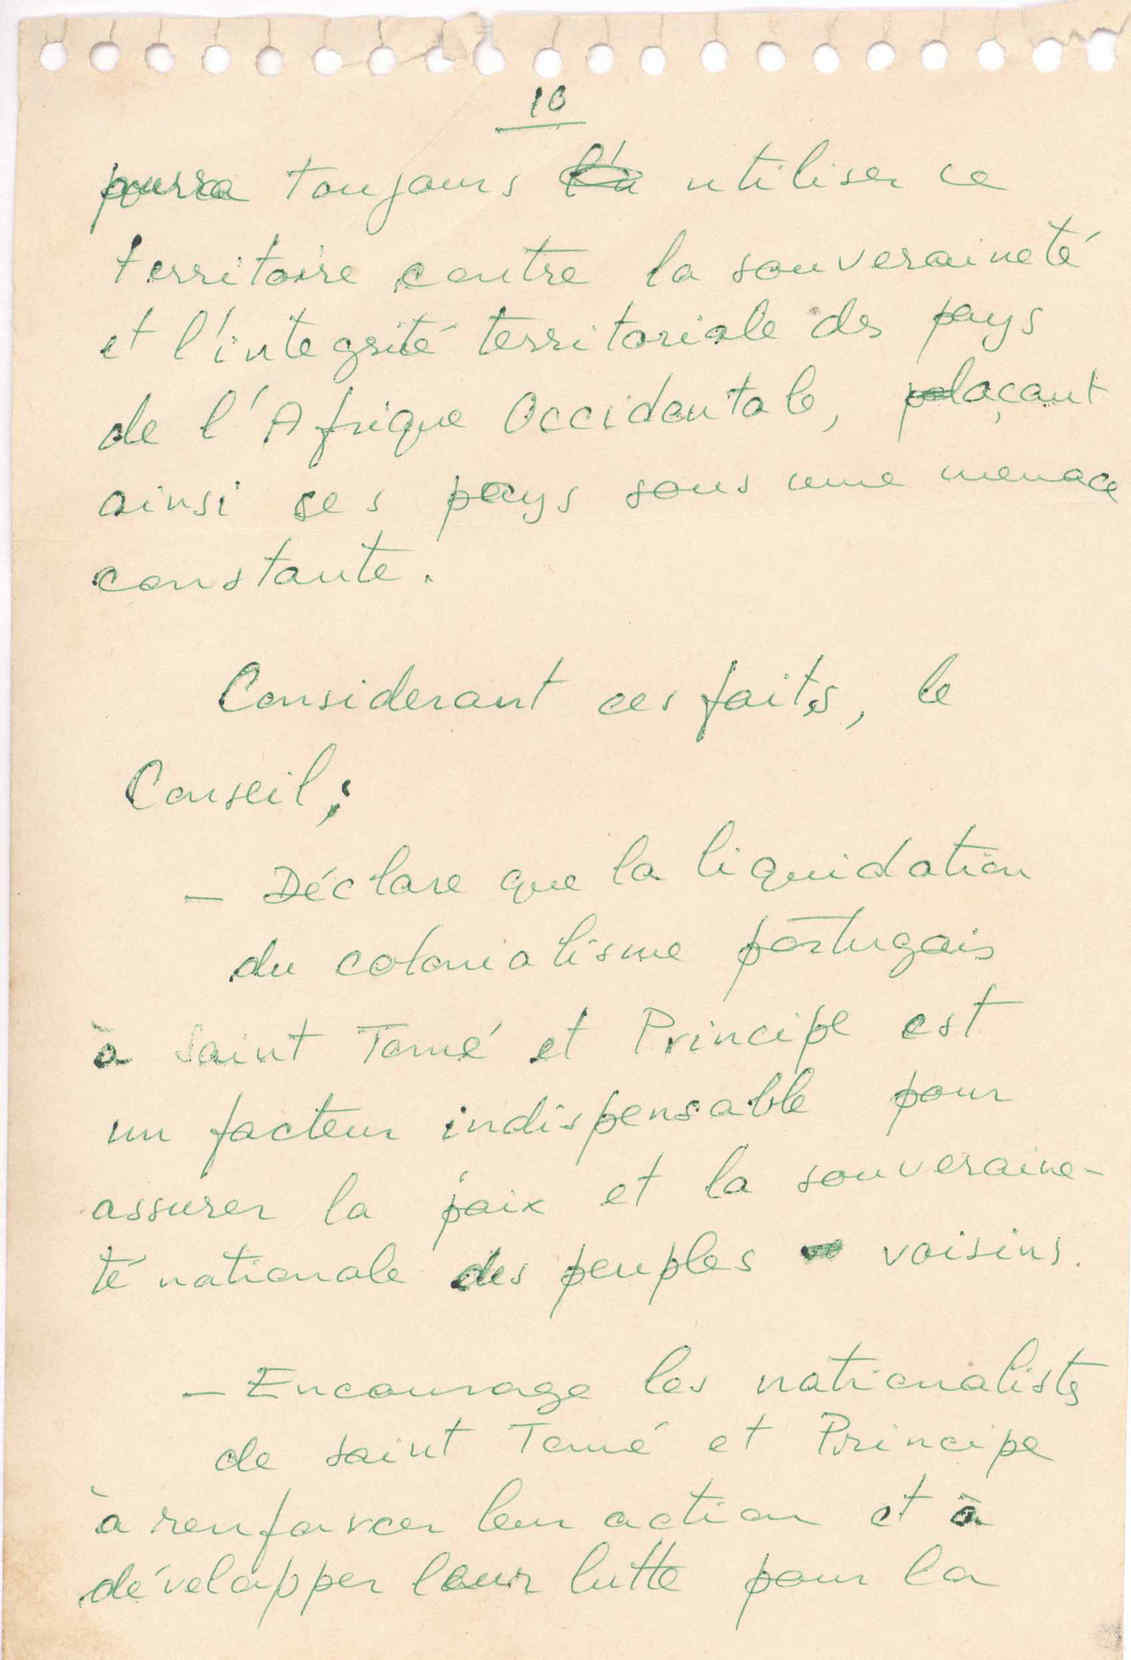 10
pourra toujours utiliser ce
territoire contre la souveraineté
et l'integrité territoriale des pays
de l'Afrique Occidentale, plaçant
ainsi ces pays sous une menace
constante.
Considerant ces faits, le
Conseil;
– Déclare que la liquidation
du colonialisme portugais
à Saint Tomé et Principe est
un facteur indispensable pour
assurer la paix et la souveraine-
té nationale des peuples voisins.
– Encourage les nationalistes
de Saint Tomé et Principe
à renforcer leur action et à
développer leur lutte pour la